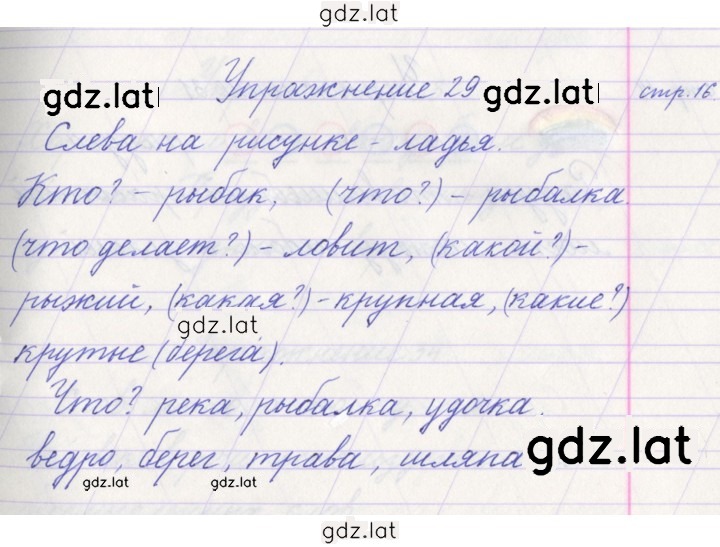 gdz.lat
gdz.lat Упражнение 29 gdz.lat стр. 16
Слева на рисунке - ладья.
Кто? - рыбак, (что?) - рыбалка.
(что делает?) - ловит, (какой?) -
рыжий, (какая?) - крупная, (какие?)
gdz.lat
крутые (берега).
Что? река, рыбалка, удочка.
ведро, берег, трава, шляпа gdz.lat
gdz.lat gdz.lat
gdz.lat